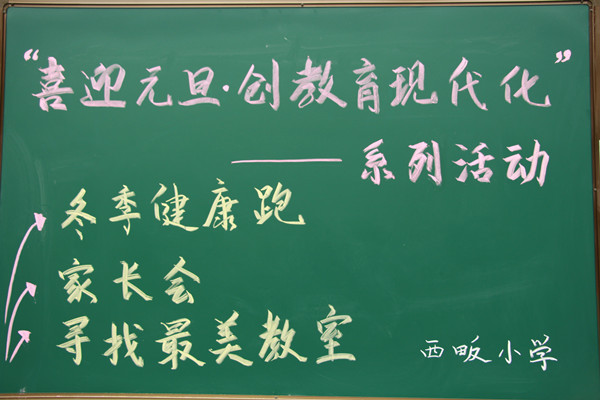 “喜迎元旦·创教育现代化”
——系列活动
冬季健康跑
家长会
寻找最美教室
西畈小学